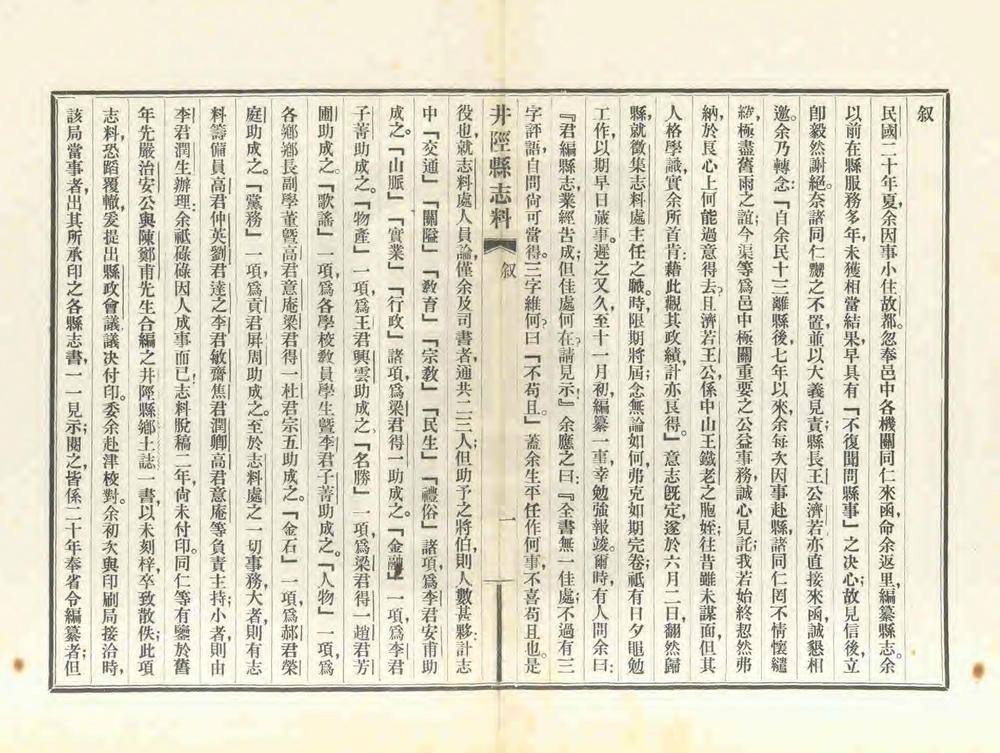 叙
民國二十年夏，余因事小住故都。忽奉邑中各機關同仁來函，命余返里，編纂縣志。余
以前在縣服務多年，未獲相當結果，早具有「不復聞問縣事」之决心；故見信後，立
卽毅然謝絕。奈諸同仁嬲之不置，並以大義見責；縣長王公濟若亦直接來函，誠懇相
邀。余乃轉念：「自余民十三離縣後，七年以來，余每次因事赴縣，諸同仁罔不情懷繾
綣，極盡舊雨之誼；今渠等爲邑中極關重要之公益事務，誠心見託；我若始終恝然弗
納，於良心上何能過意得去？且濟若王公係中山王鐵老之胞姪；往昔雖未謀面，但其
人格學識，實余所首肯；藉此觀其政績，計亦良得。」意志旣定，遂於六月二日，翻然歸
縣，就徵集志料處主任之職。時，限期將屆；念無論如何，弗克如期完卷；祇有日夕黽勉
工作，以期早日蕆事。遲之又久，至十一月初，編纂一事，幸勉強報竣。爾時，有人問余曰：
『君編縣志，業經告成；但佳處何在？請見示！』余應之曰：『全書無一佳處，不過有三
字評語，自問尙可當得。三字維何？曰「不苟且。」蓋余生平任作何事，不喜苟且也。是
井陘縣志料
叙
一
役也，就志料處人員論，僅余及司書者，通共二三人；但助予之將伯，則人數甚夥：計志
中「交通」「關隘」「敎育」「宗敎」「民生」「禮俗」諸項，爲李君安甫助
成之。「山脈」「實業」「行政」諸項，爲梁君得一助成之。「金融」一項，爲李君
子菁助成之。「物產」一項，爲王君興雲助成之。「名勝」一項，爲梁君得一趙君芳
圃助成之。「歌謠」一項，爲各學校敎員學生曁李君子菁助成之。「人物」一項，爲
各鄉鄉長副學董曁高君意庵梁君得一杜君宗五助成之。「金石」一項，爲郝君榮
庭助成之。「黨務」一項，爲貢君屏周助成之。至於志料處之一切事務，大者，則有志
料籌備員高君仲英劉君達之李君敏齋焦君潤卿高君意庵等負責主持；小者，則由
李君潤生辦理；余祇碌碌因人成事而已！志料脫稿二年，尙未付印。同仁等有鑒於舊
年先嚴治安公與陳鄭甫先生合編之井陘縣鄉土誌一書，以未刻梓，卒致散佚；此項
志料，恐蹈覆轍，爰提出縣政會議，議决付印。委余赴津校對。余初次與印刷局接洽時，
該局當事者，出其所承印之各縣志書，一一見示；閱之，皆係二十年奉省令編纂者；但